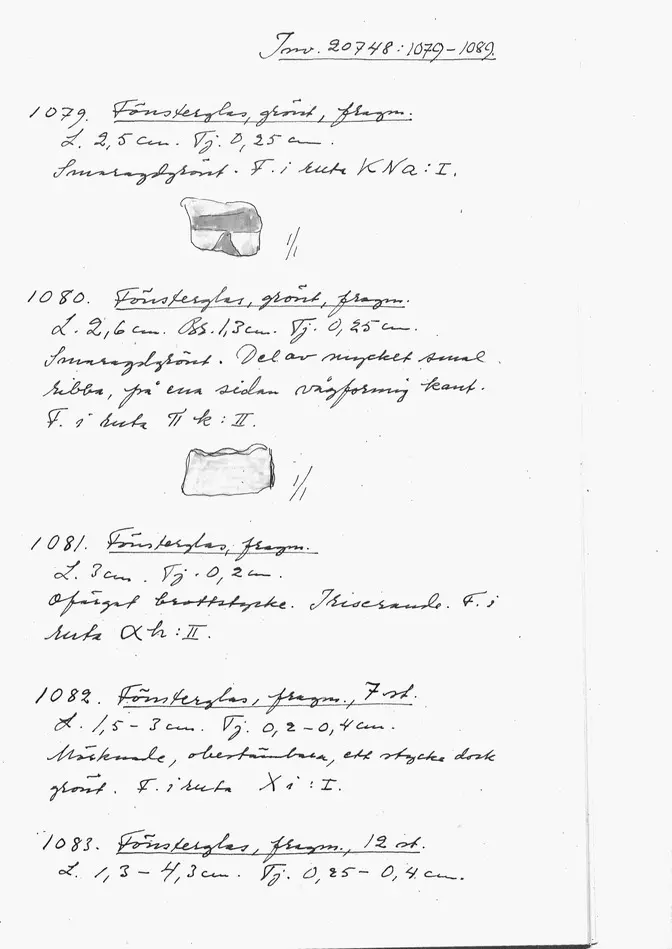 Inv. 20748:1079-1089.
1079. Fönsterglas, grönt, fragm.
L. 2,5 cm. Tj. 0,25 cm.
Smaragdgrönt. F. i ruta KNa:I.
1/1
1080. Fönsterglas, grönt, fragm.
L. 2,6 cm. Br. 1,3 cm. Tj. 0,25 cm.
Smaragdgrönt. Del av mycket smal
ribba, på ena sidan vågformig kant.
F. i ruta Πk:II.
1/1
1081. Fönsterglas, fragm.
L. 3 cm. Tj. 0,2 cm.
Ofärgat brottstycke. Iriserande. F. i
ruta αh:II.
1082. Fönsterglas, fragm., 7 st.
L. 1,5-3 cm. Tj. 0,2-0,4 cm.
Mörknade, obestämbara, ett stycke dock
grönt. F. i ruta Xi:I.
1083. Fönsterglas, fragm., 12 st.
L. 1,3-4,3 cm. Tj. 0,25-0,4 cm.